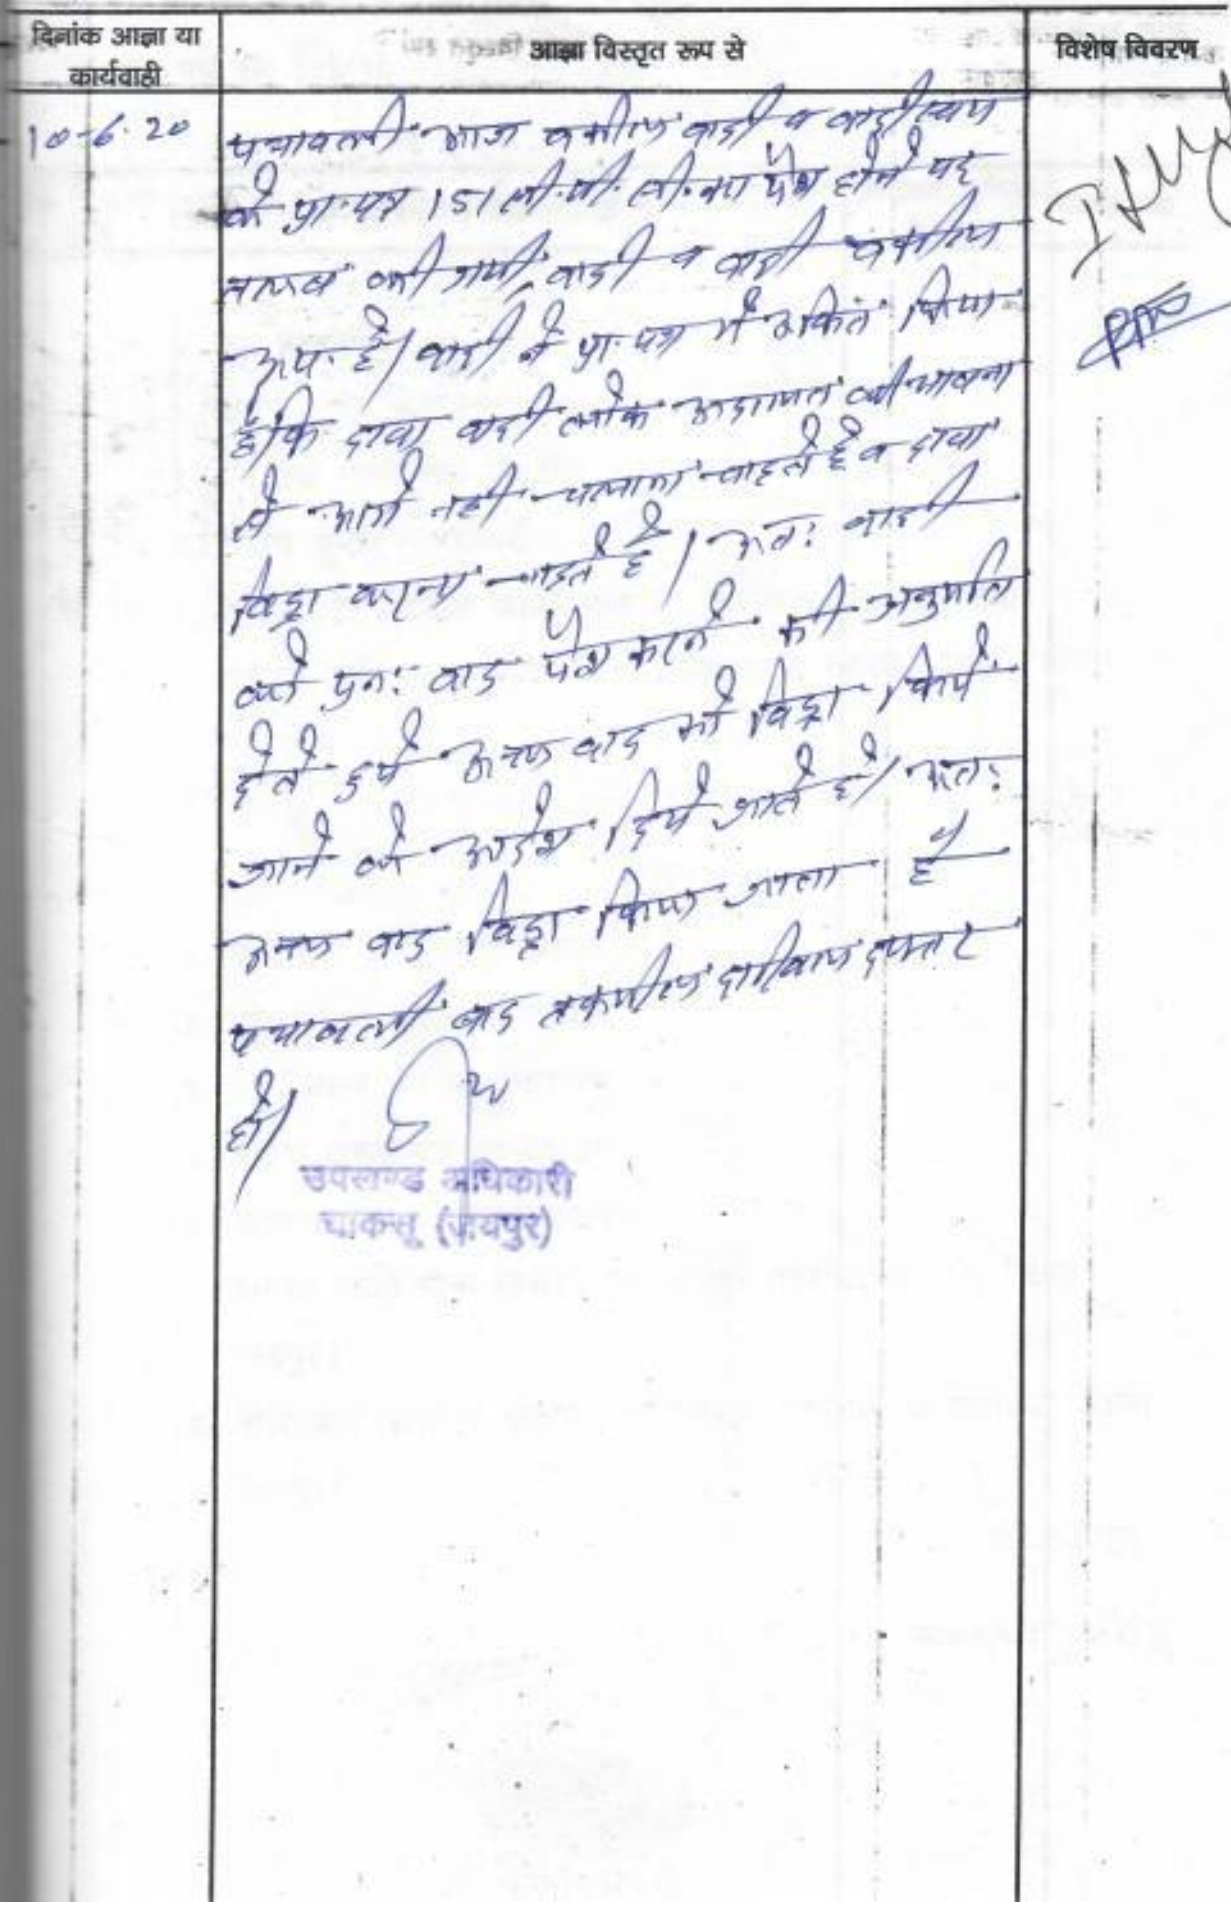 दिनांक आज्ञा या
कार्यवाही
आज्ञा विस्तृत रूप से
विशेष विवरण
10-6-20
पत्रावली आज वकील वादी व वादी स्वयं
के प्रा. पत्र 151 सी.पी.सी. का पेश होने पर
तलब की गयी, वादी व वादी वकील
उप. है। वादी ने प्रा. पत्र में अंकित किया
है कि दावा वादी लोक अदालत की भावना
से आगे नहीं चलाना चाहते है व दावा
विड्रा करना चाहते है। अतः वादी
को पुनः वाद पेश करने की अनुमति
देते हुये वाद को विड्रा किये
जाने के आदेश दिये जाते है। अतः
वाद विड्रा किया जाता है
पत्रावली बाद तकमील दाखिल दफ्तर
हो।
उपखण्ड अधिकारी
चाकसू (जयपुर)